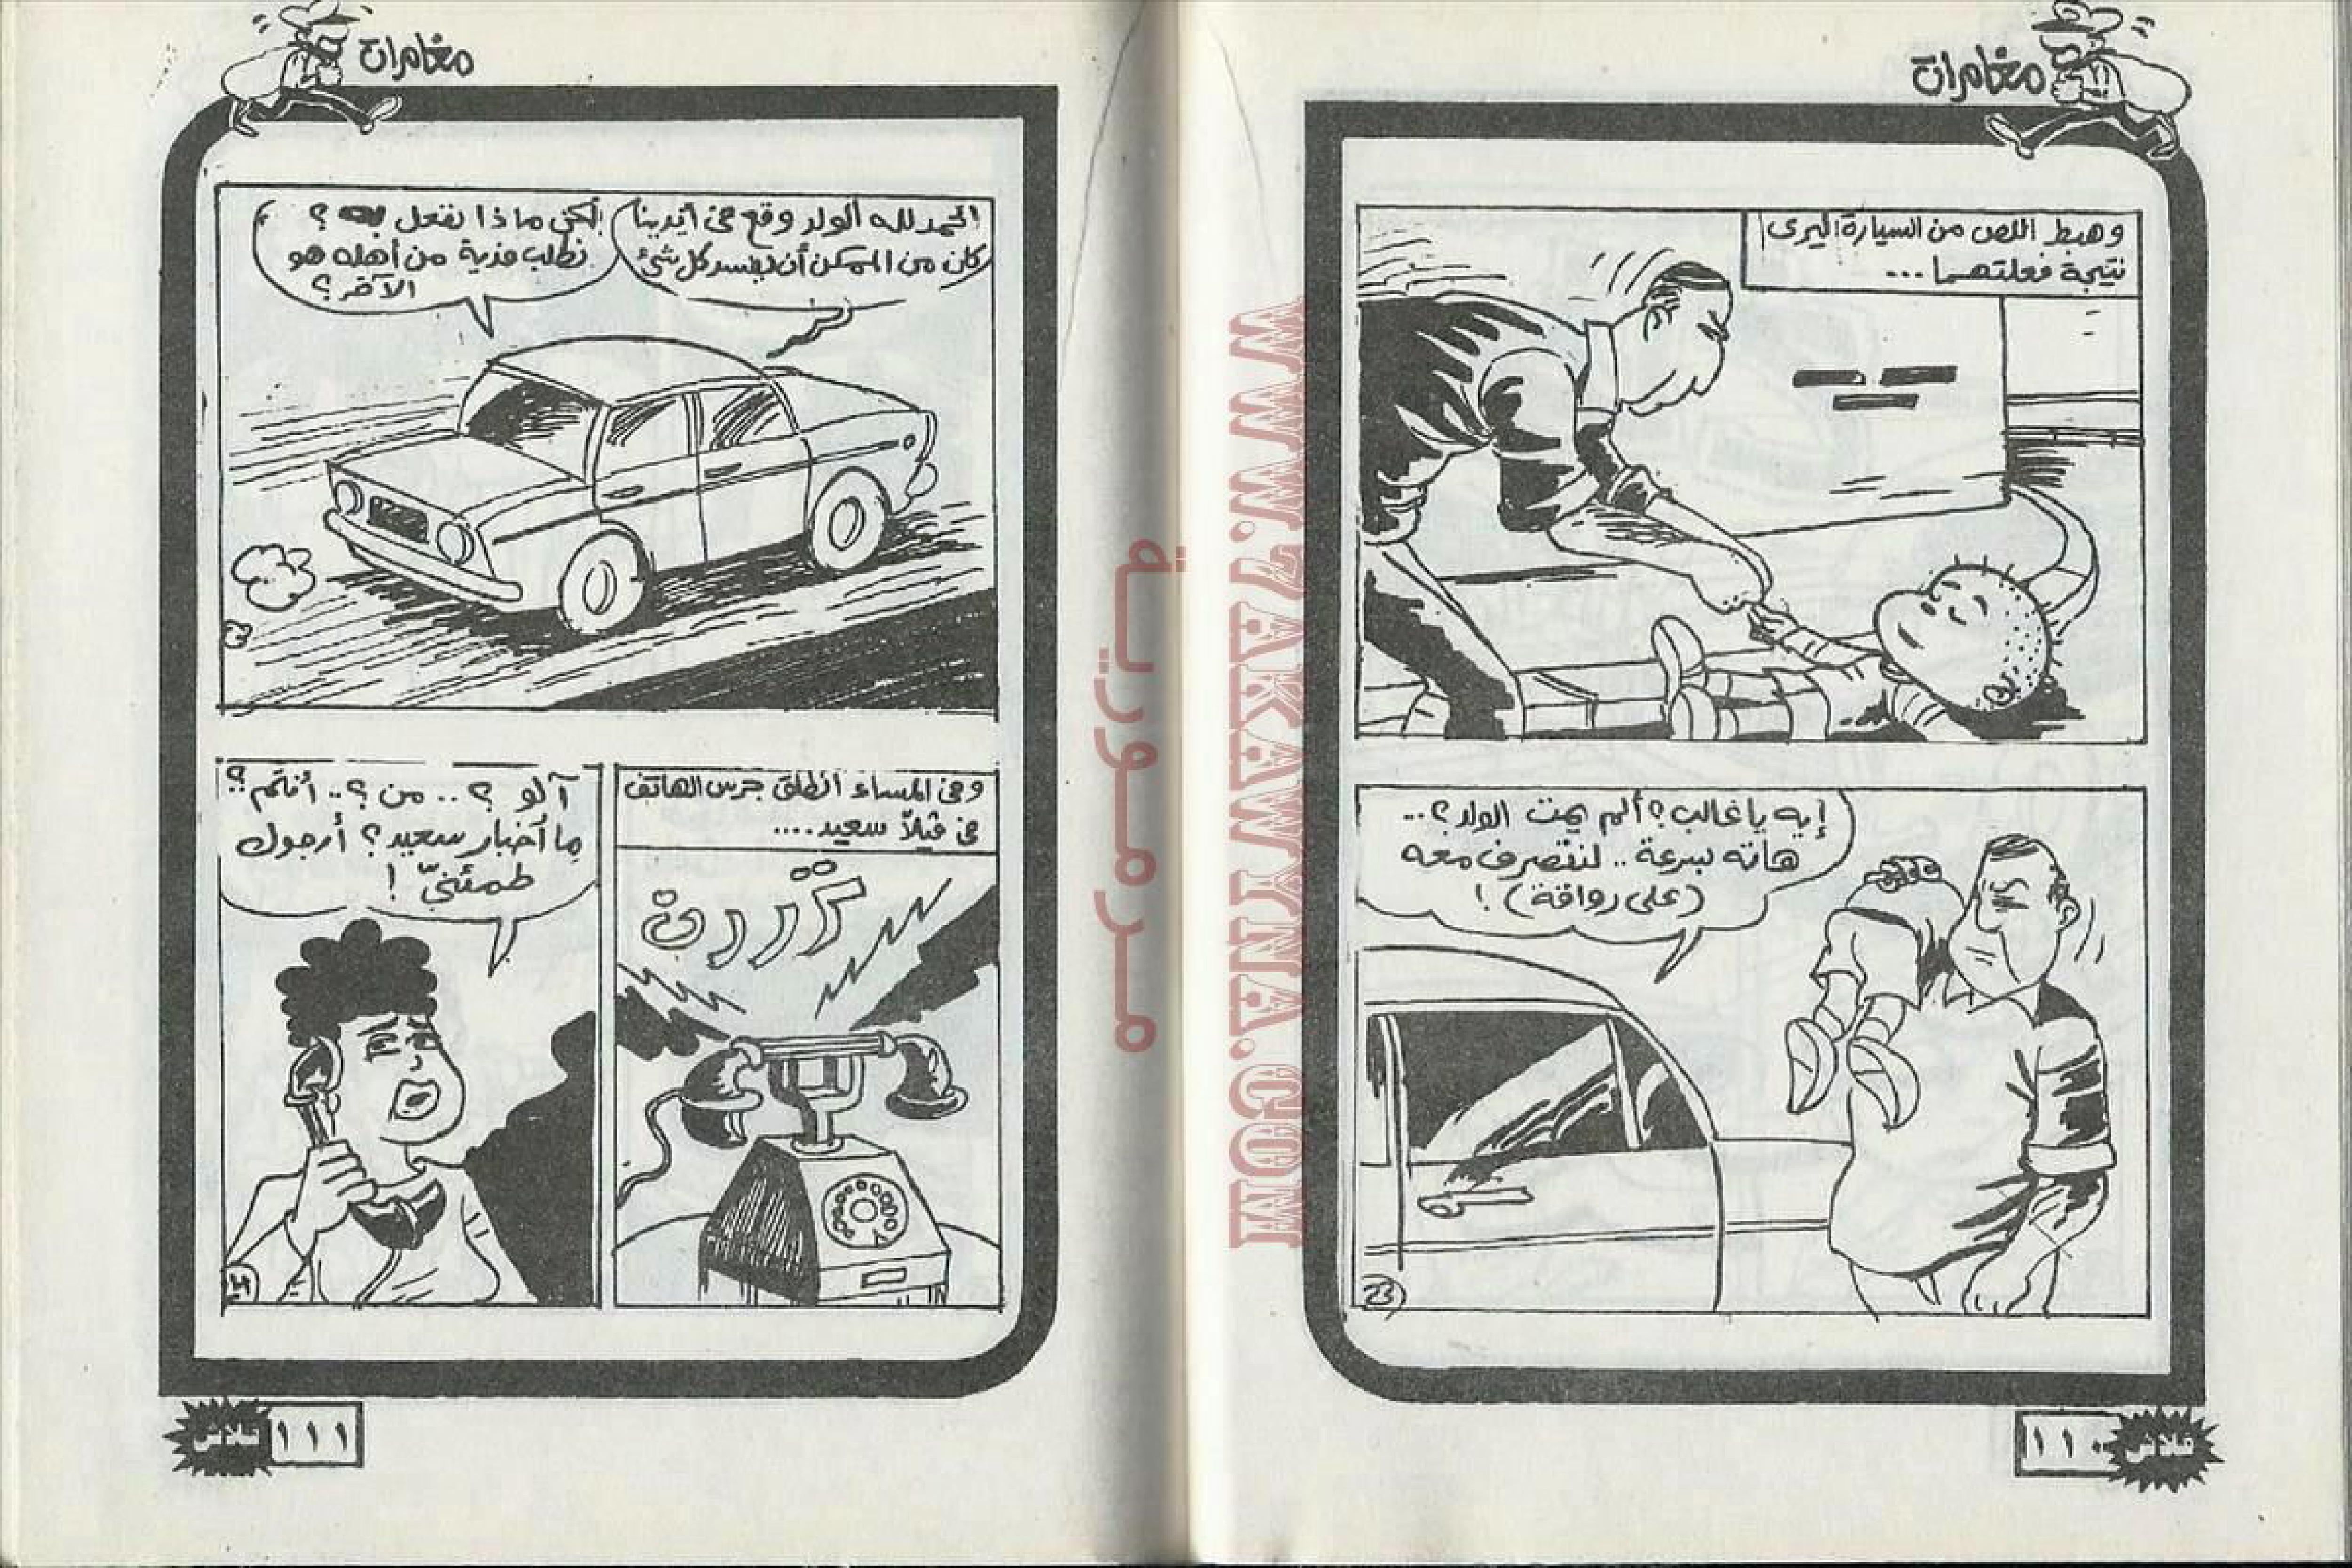 مغامرات
وهبط اللص من السيارة ليرى
نتيجة فعلتهما...
إيه يا غالب؟ ألم يمت الولد؟..
هاته بسرعة.. لنتصرف معه
(على رواقة)!
23
١١٠
فلاش
مغامرات
الحمد لله الولد وقع فى أيدينا
كان من الممكن أن يفسد كل شئ
لكن ماذا نفعل به؟
نطلب فدية من أهله هو
الآخر؟
وفى المساء انطلق جرس الهاتف
فى فيلا سعيد....
تررررن
آلو؟.. من؟.. أنتم؟
ما أخبار سعيد؟ أرجوك
طمئنّى!
١١١
فلاش
WWW.7AKAWYNA.COM
مرمورية